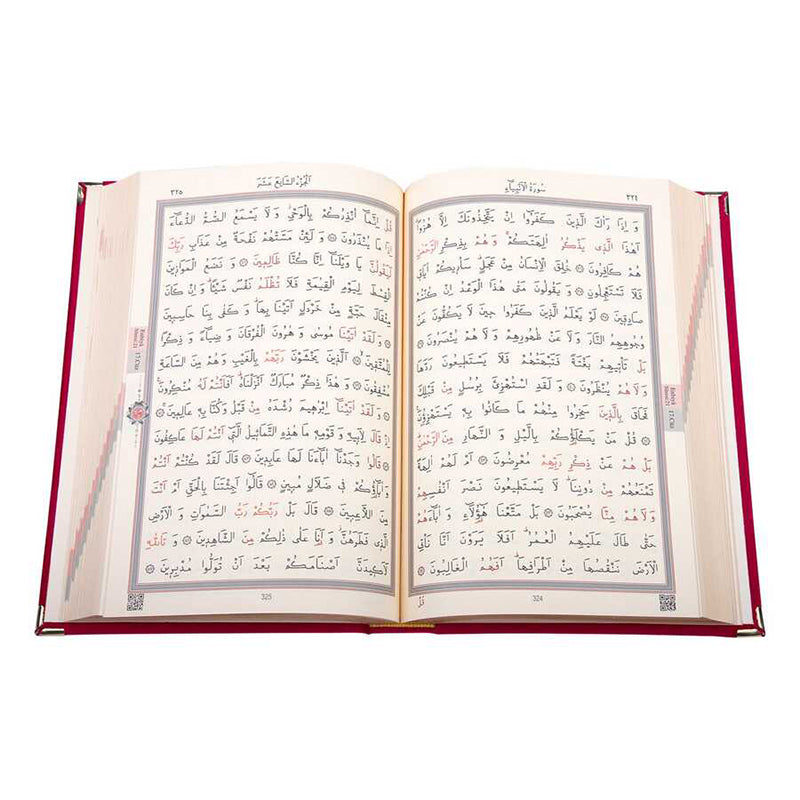 سورة الأنبياء
٣٢٤
وَ اِذَا رَاٰكَ الَّذ۪ينَ كَفَرُٓوا اِنْ يَتَّخِذُونَكَ اِلَّا هُزُوًاۜ
اَهٰذَا الَّذ۪ي يَذْكُرُ اٰلِهَتَكُمْۚ وَ هُمْ بِذِكْرِ الرَّحْمٰنِ
هُمْ كَافِرُونَ ۞ خُلِقَ الْاِنْسَانُ مِنْ عَجَلٍۜ سَاُر۪يكُمْ اٰيَات۪ي
فَلَا تَسْتَعْجِلُونِ ۞ وَ يَقُولُونَ مَتٰى هٰذَا الْوَعْدُ اِنْ كُنْتُمْ
صَادِق۪ينَ ۞ لَوْ يَعْلَمُ الَّذ۪ينَ كَفَرُوا ح۪ينَ لَا يَكُفُّونَ عَنْ
وُجُوهِهِمُ النَّارَ وَ لَا عَنْ ظُهُورِهِمْ وَ لَا هُمْ يُنْصَرُونَ ۞
بَلْ تَأْت۪يهِمْ بَغْتَةً فَتَبْهَتُهُمْ فَلَا يَسْتَط۪يعُونَ رَدَّهَا
وَ لَا هُمْ يُنْظَرُونَ ۞ وَ لَقَدِ اسْتُهْزِئَ بِرُسُلٍ مِنْ قَبْلِكَ
فَحَاقَ بِالَّذ۪ينَ سَخِرُوا مِنْهُمْ مَا كَانُوا بِه۪ يَسْتَهْزِؤُ۫نَ
۞ قُلْ مَنْ يَكْلَؤُ۬كُمْ بِالَّيْلِ وَ النَّهَارِ مِنَ الرَّحْمٰنِۜ
بَلْ هُمْ عَنْ ذِكْرِ رَبِّهِمْ مُعْرِضُونَ ۞ اَمْ لَهُمْ اٰلِهَةٌ
تَمْنَعُهُمْ مِنْ دُونِنَاۜ لَا يَسْتَط۪يعُونَ نَصْرَ اَنْفُسِهِمْ
وَ لَا هُمْ مِنَّا يُصْحَبُونَ ۞ بَلْ مَتَّعْنَا هٰٓؤُ۬لَٓاءِ وَ اٰبَٓاءَهُمْ
حَتّٰى طَالَ عَلَيْهِمُ الْعُمُرُۜ اَفَلَا يَرَوْنَ اَنَّا نَأْتِي
الْاَرْضَ نَنْقُصُهَا مِنْ اَطْرَافِهَاۜ اَفَهُمُ الْغَالِبُونَ ۞
324
قُلْ
الجزء السابع عشر
٣٢٥
قُلْ اِنَّمَٓا اُنْذِرُكُمْ بِالْوَحْيِۘ وَ لَا يَسْمَعُ الصُّمُّ الدُّعَٓاءَ
اِذَا مَا يُنْذَرُونَ ۞ وَ لَئِنْ مَسَّتْهُمْ نَفْحَةٌ مِنْ عَذَابِ رَبِّكَ
لَيَقُولُنَّ يَا وَيْلَنَٓا اِنَّا كُنَّا ظَالِم۪ينَ ۞ وَ نَضَعُ الْمَوَاز۪ينَ
الْقِسْطَ لِيَوْمِ الْقِيٰمَةِ فَلَا تُظْلَمُ نَفْسٌ شَيْـًٔاۜ وَ اِنْ كَانَ
مِثْقَالَ حَبَّةٍ مِنْ خَرْدَلٍ اَتَيْنَا بِهَاۜ وَ كَفٰى بِنَا حَاسِب۪ينَ
۞ وَ لَقَدْ اٰتَيْنَا مُوسٰى وَ هٰرُونَ الْفُرْقَانَ وَ ضِيَٓاءً وَ ذِكْرًا
لِلْمُتَّق۪ينَۙ ۞ اَلَّذ۪ينَ يَخْشَوْنَ رَبَّهُمْ بِالْغَيْبِ وَ هُمْ مِنَ السَّاعَةِ
مُشْفِقُونَ ۞ وَ هٰذَا ذِكْرٌ مُبَارَكٌ اَنْزَلْنَاهُۜ اَفَاَنْتُمْ لَهُ مُنْكِرُونَ۟ ۞
وَ لَقَدْ اٰتَيْنَٓا اِبْرٰه۪يمَ رُشْدَهُ مِنْ قَبْلُ وَ كُنَّا بِه۪ عَالِم۪ينَۚ ۞
اِذْ قَالَ لِاَب۪يهِ وَ قَوْمِه۪ مَا هٰذِهِ التَّمَاث۪يلُ الَّت۪ٓي اَنْتُمْ لَهَا عَاكِفُونَ
۞ قَالُوا وَجَدْنَٓا اٰبَٓاءَنَا لَهَا عَابِد۪ينَ ۞ قَالَ لَقَدْ كُنْتُمْ اَنْتُمْ
وَ اٰبَٓاؤُ۬كُمْ ف۪ي ضَلَالٍ مُب۪ينٍ ۞ قَالُٓوا اَجِئْتَنَا بِالْحَقِّ اَمْ اَنْتَ
مِنَ اللَّاعِب۪ينَ ۞ قَالَ بَلْ رَبُّكُمْ رَبُّ السَّمٰوَاتِ وَ الْاَرْضِ
الَّذ۪ي فَطَرَهُنَّۘ وَ اَنَا عَلٰى ذٰلِكُمْ مِنَ الشَّاهِد۪ينَ ۞ وَ تَاللّٰهِ
لَاَك۪يدَنَّ اَصْنَامَكُمْ بَعْدَ اَنْ تُوَلُّوا مُدْبِر۪ينَ ۞
325